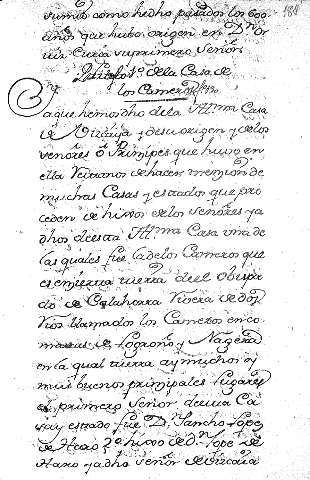 184
sumito como hedho pasados los 600
años que hubo origen en Dn
su primero Señor
Capitulo 1º dela Casa de
los Cameros
Ya que hemos dho dela Ill̃ma Casa
de Vizcaya y desu origen y delos
señores ó Principes que huvo en
ella Veamos de hacer mención de
muchas Casas y estados que pro
ceden de hixos delos Señores ya
dhos deesta Ill̃ma Casa una de
las quales fue la delos Cameros que
es en tierra del Obispa
do de Calahorra Rivera de dos
Rios llamados los Cameros en co
marcas de Logroño y Nagera
en la qual tierra ay muchos y
mui buenos principales lugares
el primero Señor de una Ca
sa y estado fue Dn Sancho Lopez
de Haro 2º hixo de Dn Lope de
Haro ya dho señor de Vizcaia